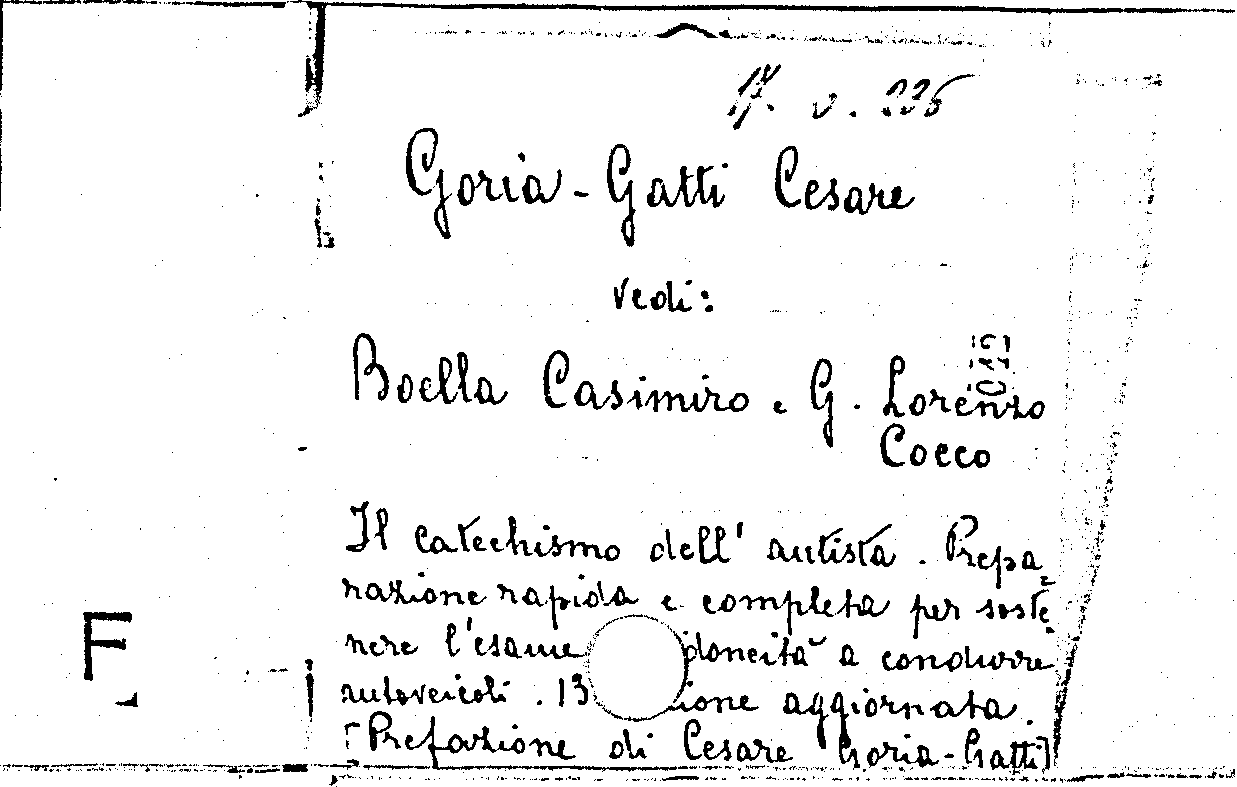 17. v. 226
Goria-Gatti Cesare
vedi:
Boella Casimiro e G. Lorenzo
Cocco
Il catechismo dell'autista. Prepa=
razione rapida e completa per soste=
nere l'esame doneità a condurre
autoveicoli. 13 ione aggiornata.
[Prefazione di Cesare Goria-Gatti]
F